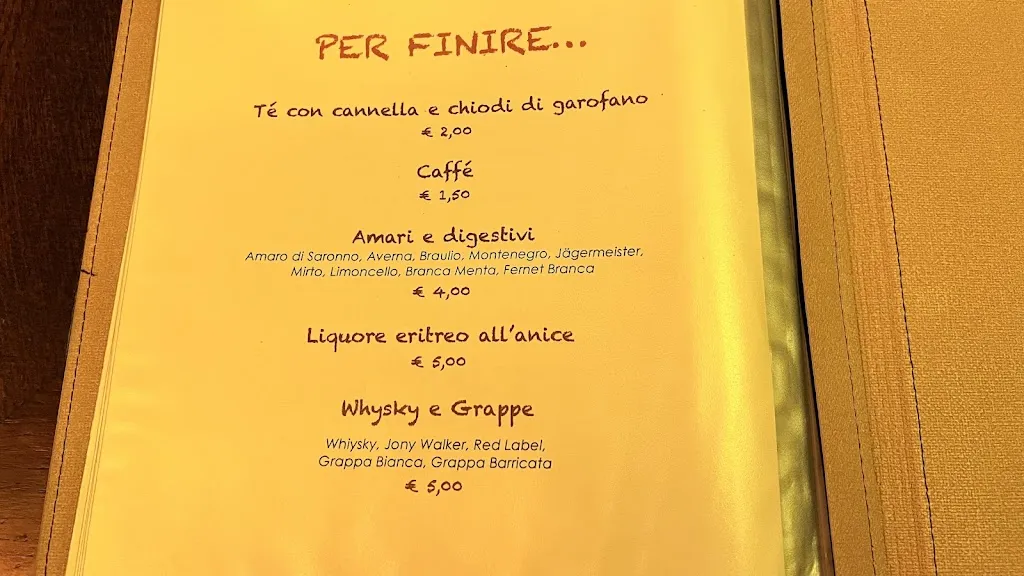 PER FINIRE...
Té con cannella e chiodi di garofano
€ 2,00
Caffé
€ 1,50
Amari e digestivi
Amaro di Saronno, Averna, Braulio, Montenegro, Jägermeister,
Mirto, Limoncello, Branca Menta, Fernet Branca
€ 4,00
Liquore eritreo all'anice
€ 5,00
Whysky e Grappe
Whiysky, Jony Walker, Red Label,
Grappa Bianca, Grappa Barricata
€ 5,00